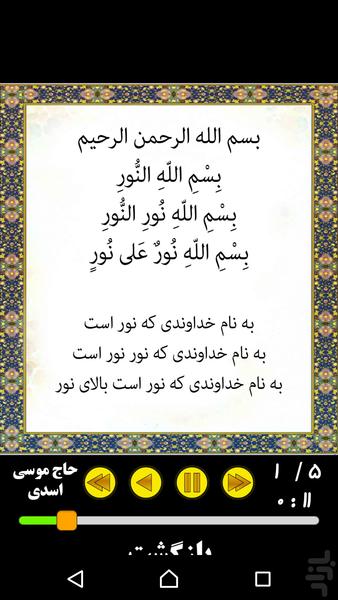 بسم الله الرحمن الرحیم
بِسْمِ اللّهِ النُّورِ
بِسْمِ اللّهِ نُورِ النُّورِ
بِسْمِ اللّهِ نُورٌ عَلی نُورٍ
به نام خداوندی که نور است
به نام خداوندی که نور نور است
به نام خداوندی که نور است بالای نور
حاج موسی
اسدی
۱ / ۵
۰ : ۱۱
بازگشت
بازار